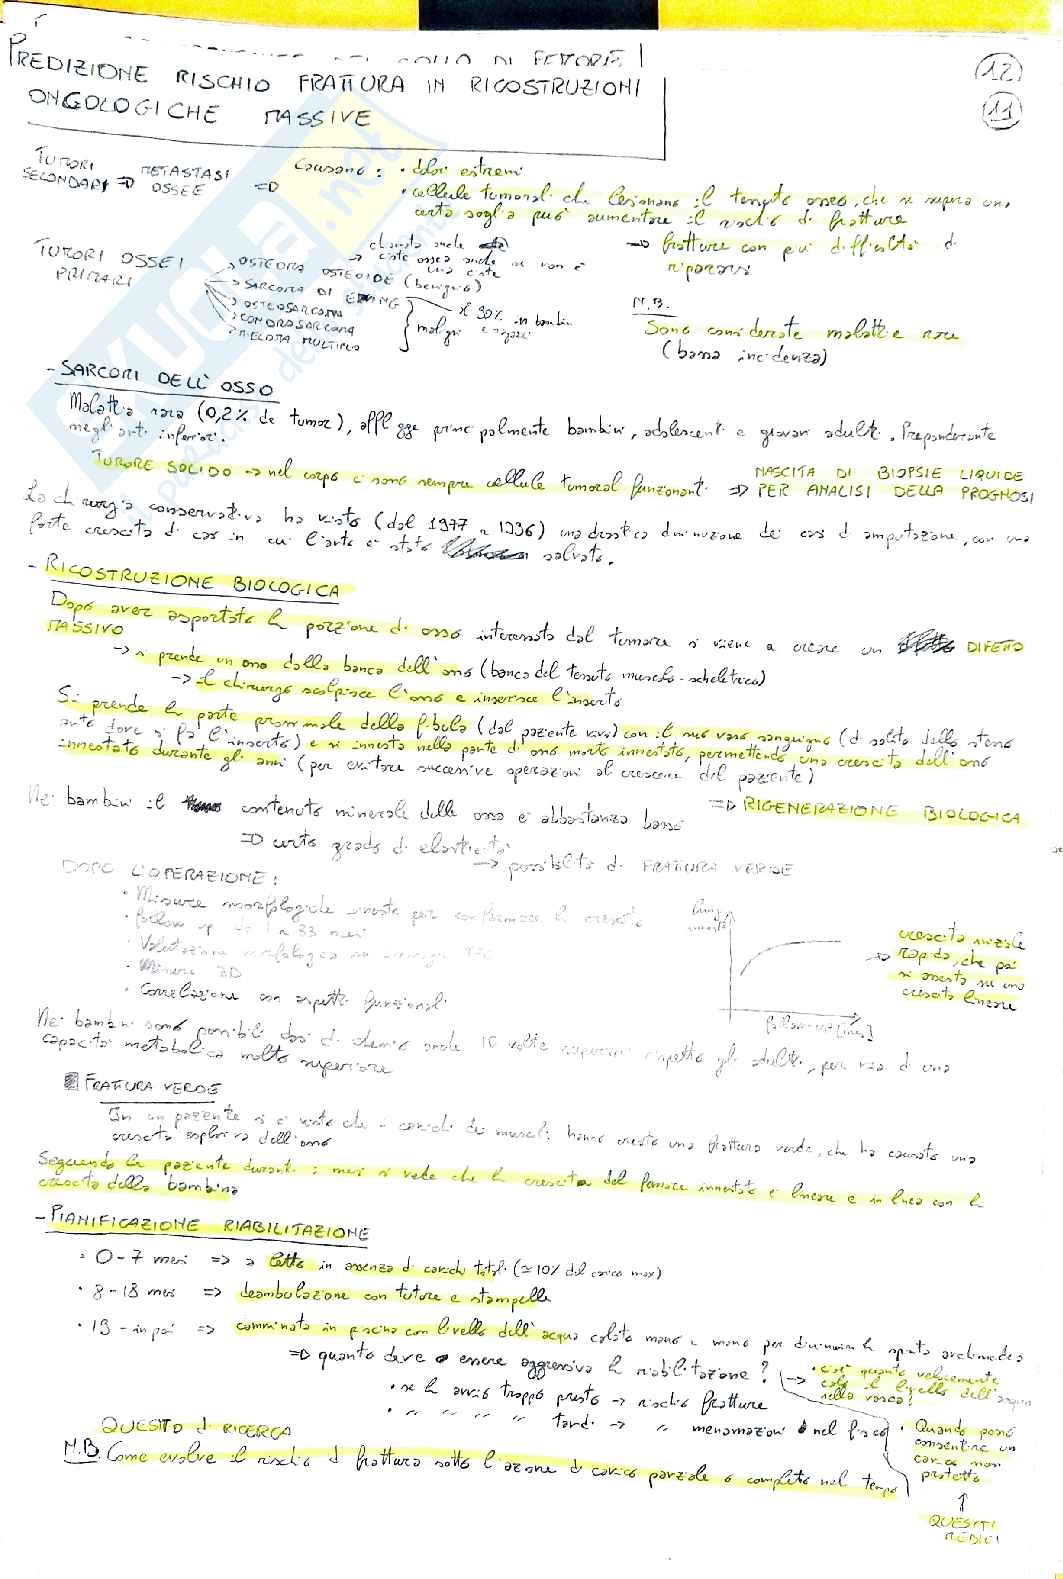 COLLO DI FEMORE
PREDIZIONE RISCHIO FRATTURA IN RICOSTRUZIONI
ONGOLOGICHE MASSIVE
12
11
TUMORI SECONDARI => METASTASI OSSEE => Causano: • dolori estremi
• cellule tumorali che lesionano il tessuto osseo, che se supera una
certa soglia può aumentare il rischio di fratture
=> fratture con più difficoltà di
ripararsi
TUMORI OSSEI
PRIMARI
chiamato anche
ciste ossea anche se non è
una ciste
OSTEOMA OSTEOIDE (benigno)
SARCOMA DI EWING
OSTEOSARCOMA
CONDROSARCOMA
MIELOMA MULTIPLO
maligni
il 90% in bambini
e ragazzi
N.B.
Sono considerate malattie rare
(bassa incidenza)
- SARCOMI DELL'OSSO
Malattia rara (0,2% dei tumori), affligge principalmente bambini, adolescenti e giovani adulti. Preponderante
negli arti inferiori.
TUMORE SOLIDO -> nel corpo ci sono sempre cellule tumorali funzionanti => NASCITA DI BIOPSIE LIQUIDE
PER ANALISI DELLA PROGNOSI
La chirurgia conservativa ha visto (dal 1977 a 1996) una drastica diminuzione dei casi di amputazione, con una
forte crescita di casi in cui l'arto è stato salvato.
- RICOSTRUZIONE BIOLOGICA
Dopo aver asportato la porzione di osso interessata dal tumore si viene a creare un DIFETTO
MASSIVO
-> si prende un osso dalla banca dell'osso (banca del tessuto muscolo-scheletrico)
-> il chirurgo scolpisce l'osso e inserisce l'inserto
Si prende la parte prossimale della fibula (dal paziente vivo) con il suo vaso sanguigno (di solito dello stesso
arto dove si fa l'inserto) e si innesta nella parte di osso morto innestato, permettendo una crescita dell'osso
innestato durante gli anni (per evitare successive operazioni al crescere del paziente)
=> RIGENERAZIONE BIOLOGICA
Nei bambini il contenuto minerale delle ossa è abbastanza basso
=> certo grado di elasticità
-> possibilità di FRATTURA VERDE
DOPO L'OPERAZIONE:
• Misure morfologiche innesto per confermare la crescita
• follow up da 1 a 33 mesi
• Valutazione morfologica su immagini TAC
• Misure 3D
• Correlazione con aspetti funzionali
lung
innesto
follow up [mesi]
=> crescita iniziale
rapida, che poi
si assesta su una
crescita lineare
Nei bambini sono possibili dosi di chemio anche 10 volte superiori rispetto gli adulti, per via di una
capacità metabolica molto superiore
FRATTURA VERDE
In un paziente si è visto che i carichi dei muscoli hanno creato una frattura verde, che ha causato una
crescita esplosiva dell'osso
Seguendo la paziente durante i mesi si vede che la crescita del femore innestato è lineare e in linea con la
crescita della bambina
- PIANIFICAZIONE RIABILITAZIONE
• 0-7 mesi => a letto in assenza di carichi totali (≃10% del carico max)
• 8-18 mesi => deambulazione con tutore e stampelle
• 19 - in poi => camminata in piscina con livello dell'acqua calato mano a mano per diminuire la spinta archimedea
=> quanto deve essere aggressiva la riabilitazione? -> • cioè quanto velocemente
calo il livello dell'acqua
nella vasca?
• se la avvio troppo presto -> rischio fratture
• " " " " tardi -> " menomazioni nel fisico
• Quando posso
consentire un
carico non
protetto
QUESITI
MEDICI
QUESITO di RICERCA
N.B. Come evolve il rischio di frattura sotto l'azione di carico parziale o completo nel tempo